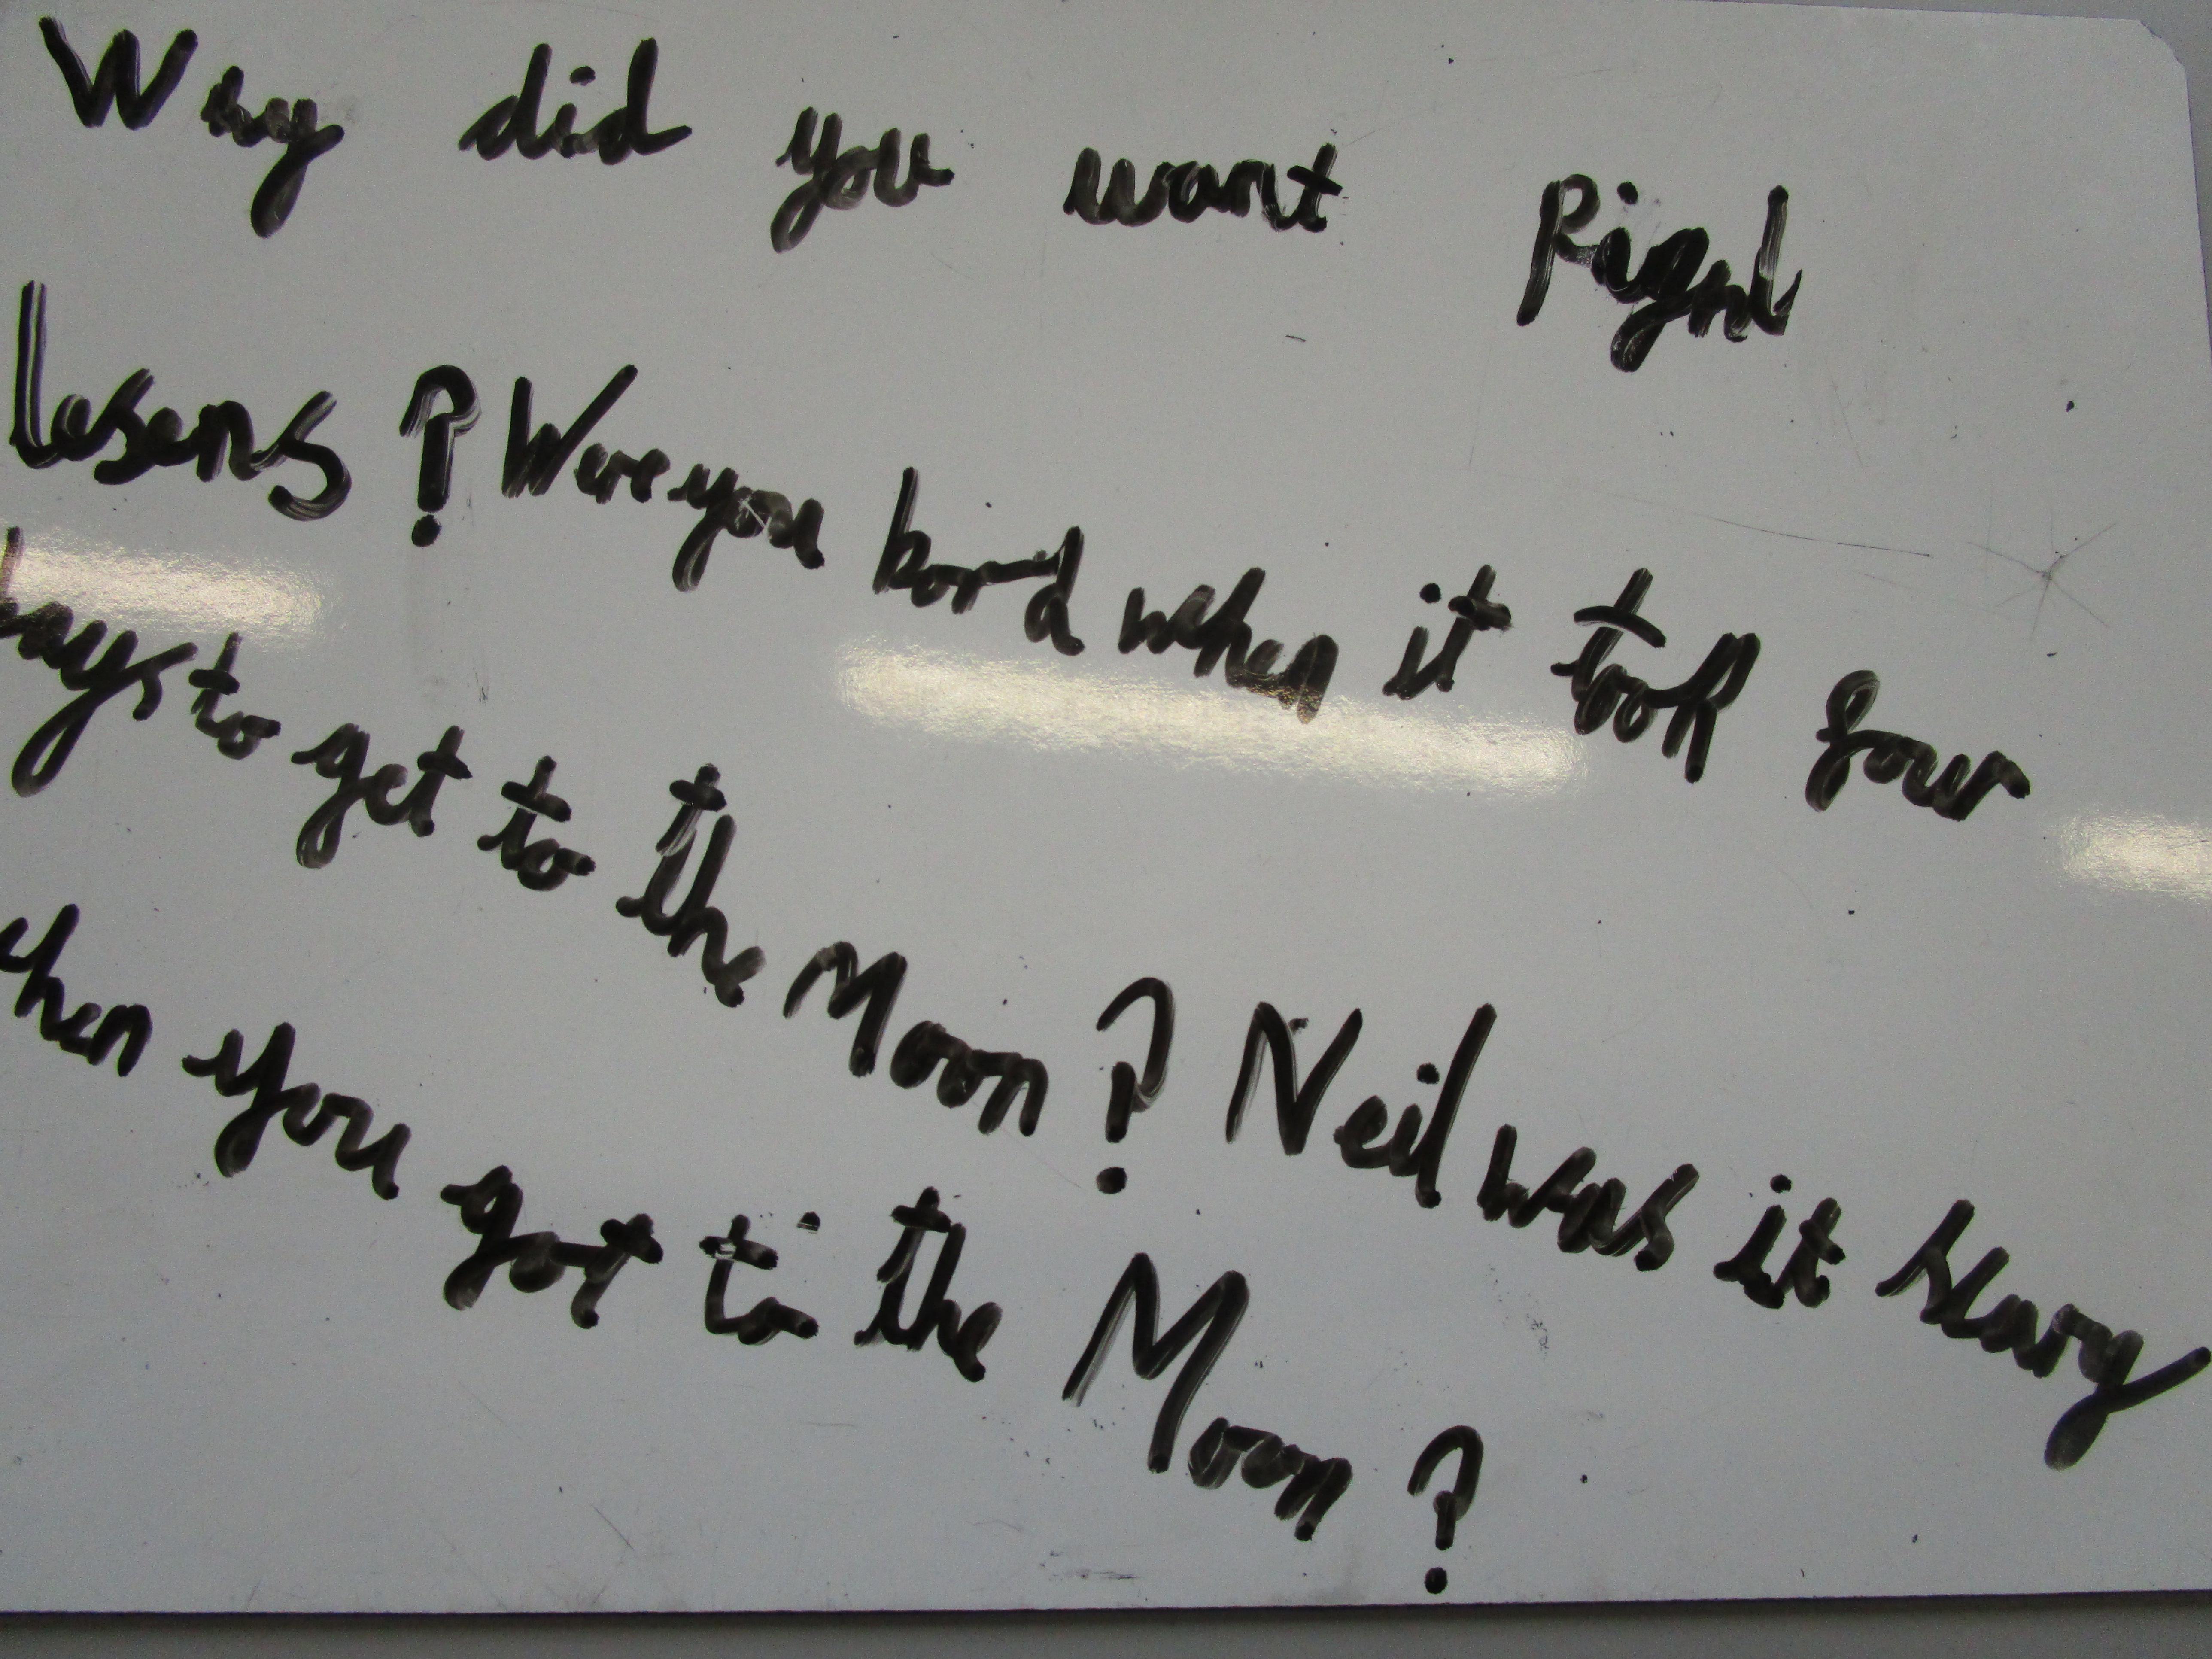 Why did you want
lesens? Were you bord when it took four
days to get to the Moon? Neil was it
when you got to the Moon?